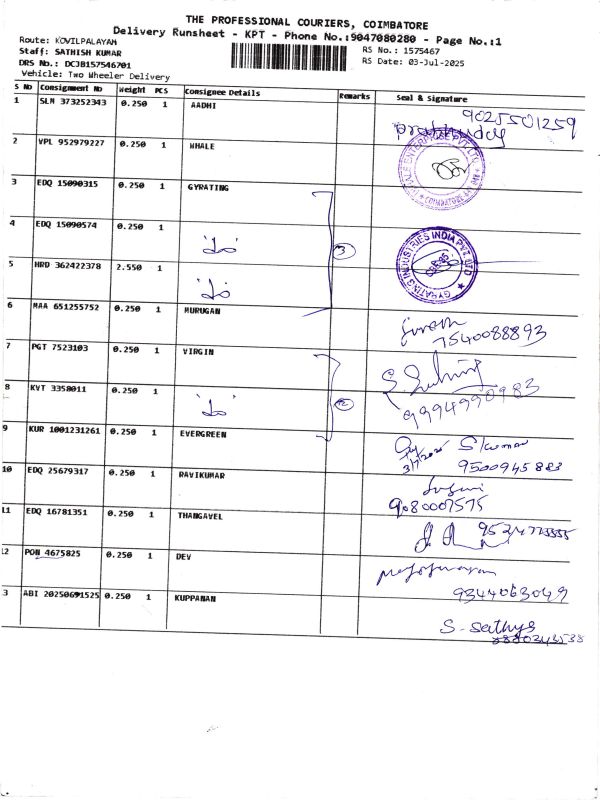 THE PROFESSIONAL COURIERS, COIMBATORE
Delivery Runsheet - KPT - Phone No.:9047080280 - Page No.:1
Route: KOVILPALAYAM
Staff: SATHISH KUMAR
DRS No.: DCJB157546701
Vehicle: Two Wheeler Delivery
RS No.: 1575467
RS Date: 03-Jul-2025
S No Consignment No Weight PCS Consignee Details Remarks Seal & Signature
1 SLM 373252343 0.250 1 AADHI 9025501259
2 VPL 952979227 0.250 1 WHALE
3 EDQ 15090315 0.250 1 GYRATING
4 EDQ 15090574 0.250 1 3
GYRATING INDUSTRIES INDIA PVT. LTD
5 HRD 362422378 2.550 1
6 MAA 651255752 0.250 1 MURUGAN
7540088893
7 PGT 7523103 0.250 1 VIRGIN
8 KVT 3358011 0.250 1
9994990983
9 KUR 1001231261 0.250 1 EVERGREEN S Kumar
3/7/2025 9500945883
10 EDQ 25679317 0.250 1 RAVIKUMAR
9080007575
11 EDQ 16781351 0.250 1 THANGAVEL
12 PON 4675825 0.250 1 DEV
9344063049
3 ABI 20250691525 0.250 1 KUPPANAN
S. Sathya